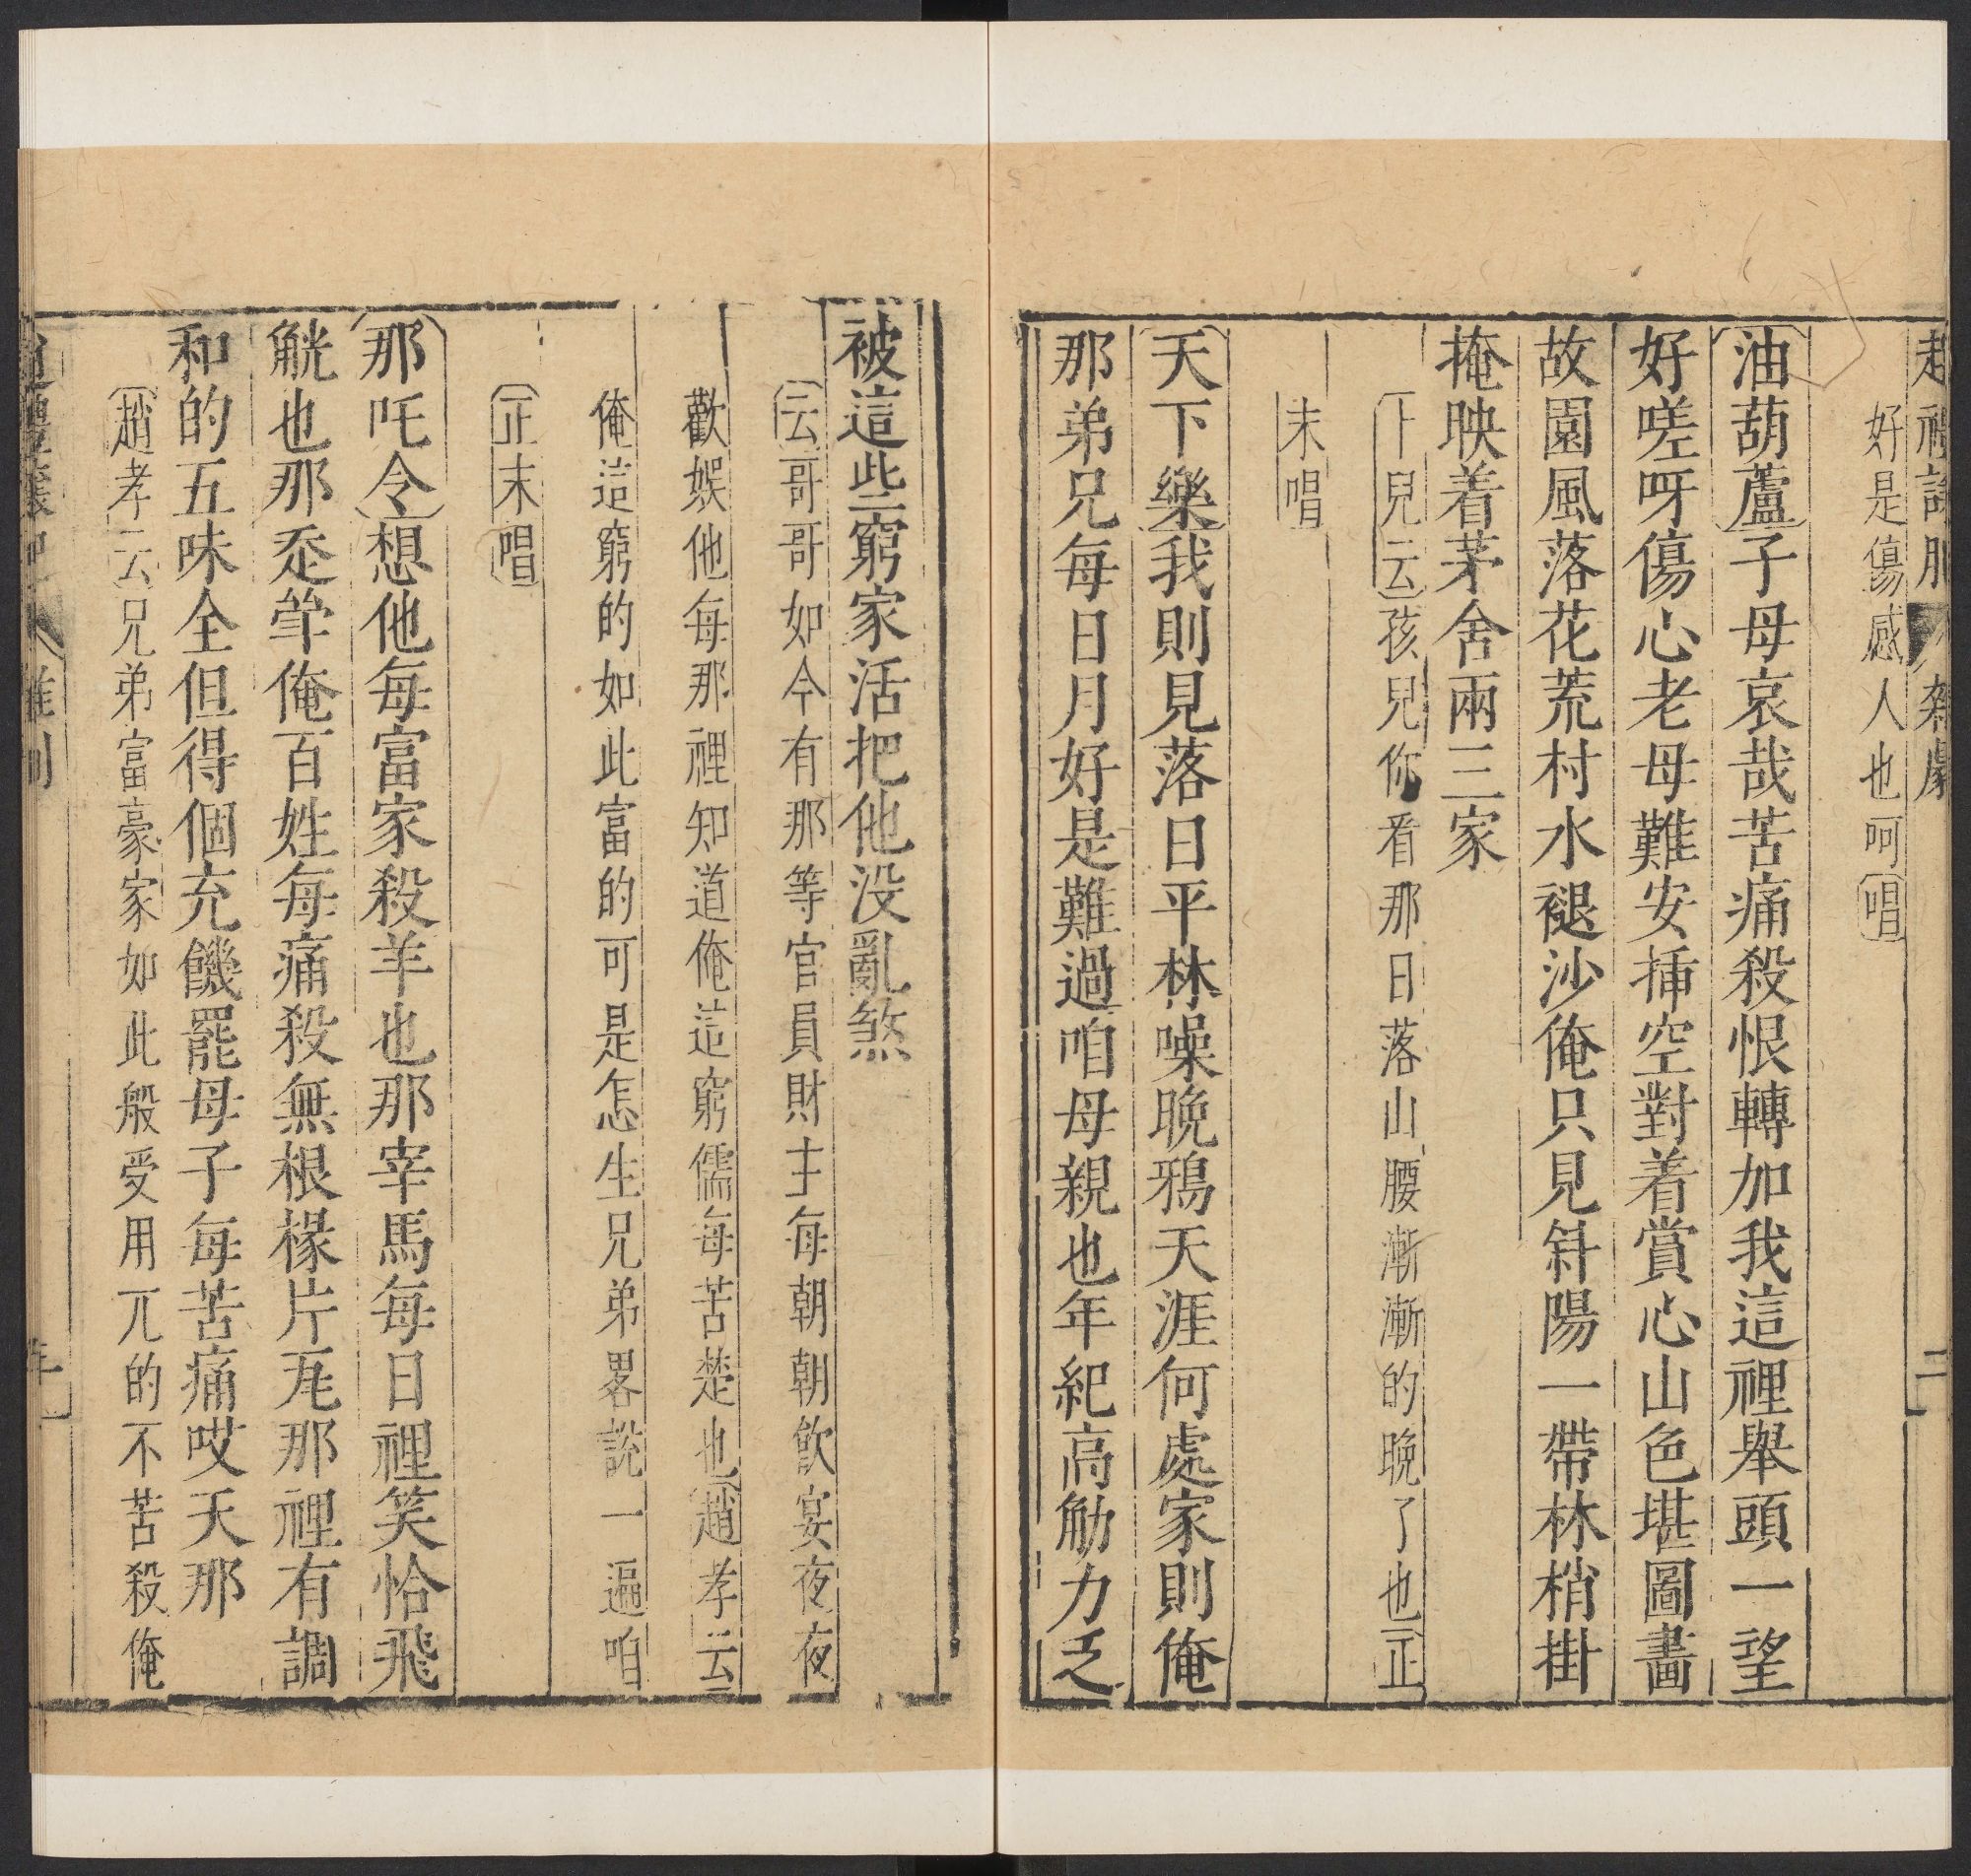 雜劇
二
好是傷感人也呵唱
油葫蘆子母哀哉苦痛殺恨轉加我這裡舉頭一望
好嗟呀傷心老母難安揷空對着賞心山色堪圖畫
故園風落花荒村水褪沙俺只見斜陽一帶林梢掛
掩映着茅舍兩三家
卜兒云孩兒你看那日落山腰漸漸的晚了也正
末唱
天下樂我則見落日平林噪晚鴉天涯何處家則俺
那弟兄每日月好是難過咱母親也年紀高觔力乏
被這些窮家活把他没亂煞
云哥哥如今有那等官員財主每朝朝飮宴夜夜
歡娱他每那裡知道俺這窮儒每苦楚也趙孝云
俺這窮的如此富的可是怎生兄弟畧說一遍咱
正末唱
那吒令想他每富家殺羊也那宰馬每日裡笑恰飛
觥也那乑斝俺百姓每痛殺無根椽片瓦那裡有調
和的五味全但得個充饑罷母子每苦痛哎天那
趙孝云兄弟富豪家如此般受用兀的不苦殺俺